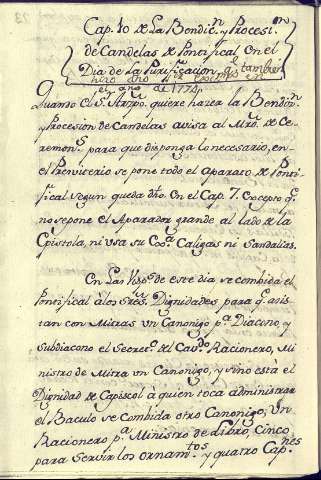 Cap. 10 de la Bendic.n y Procesi.n
de Candelas de Pontifical en el
Dia de la Purif.n
el año de 1774
Quando el S.r Arzpo. quiere hazer la Bendiz.n
y Procesion de Candelas avisa al Mro. de Ce-
remon.s para que disponga lo necesario, en
el Previterio se pone todo el aparato de Ponti-
fical segun queda dho. en el Cap. 7. excepto q.e
no se pone el Aparador grande al lado de la
Epistola, ni usa su Ex.a Caligas ni Sandalias.
En las Visp.s de este dia se combida el
Pontifical á los S.res Dignidades para q.e asis
tan con Mitras un Canonigo p.a Diacono, y
Subdiacono el Secret.o del Cav.do Racionero, Mi
nistro de Mitra un Canonigo, y sino está el
Dignidad de Capiscol á quien toca administrar
el Baculo se combida otro Canonigo, Un
Racionero p.a Ministro de Libro, cinco
para servir los ornam.tos y quatro Cap.nes